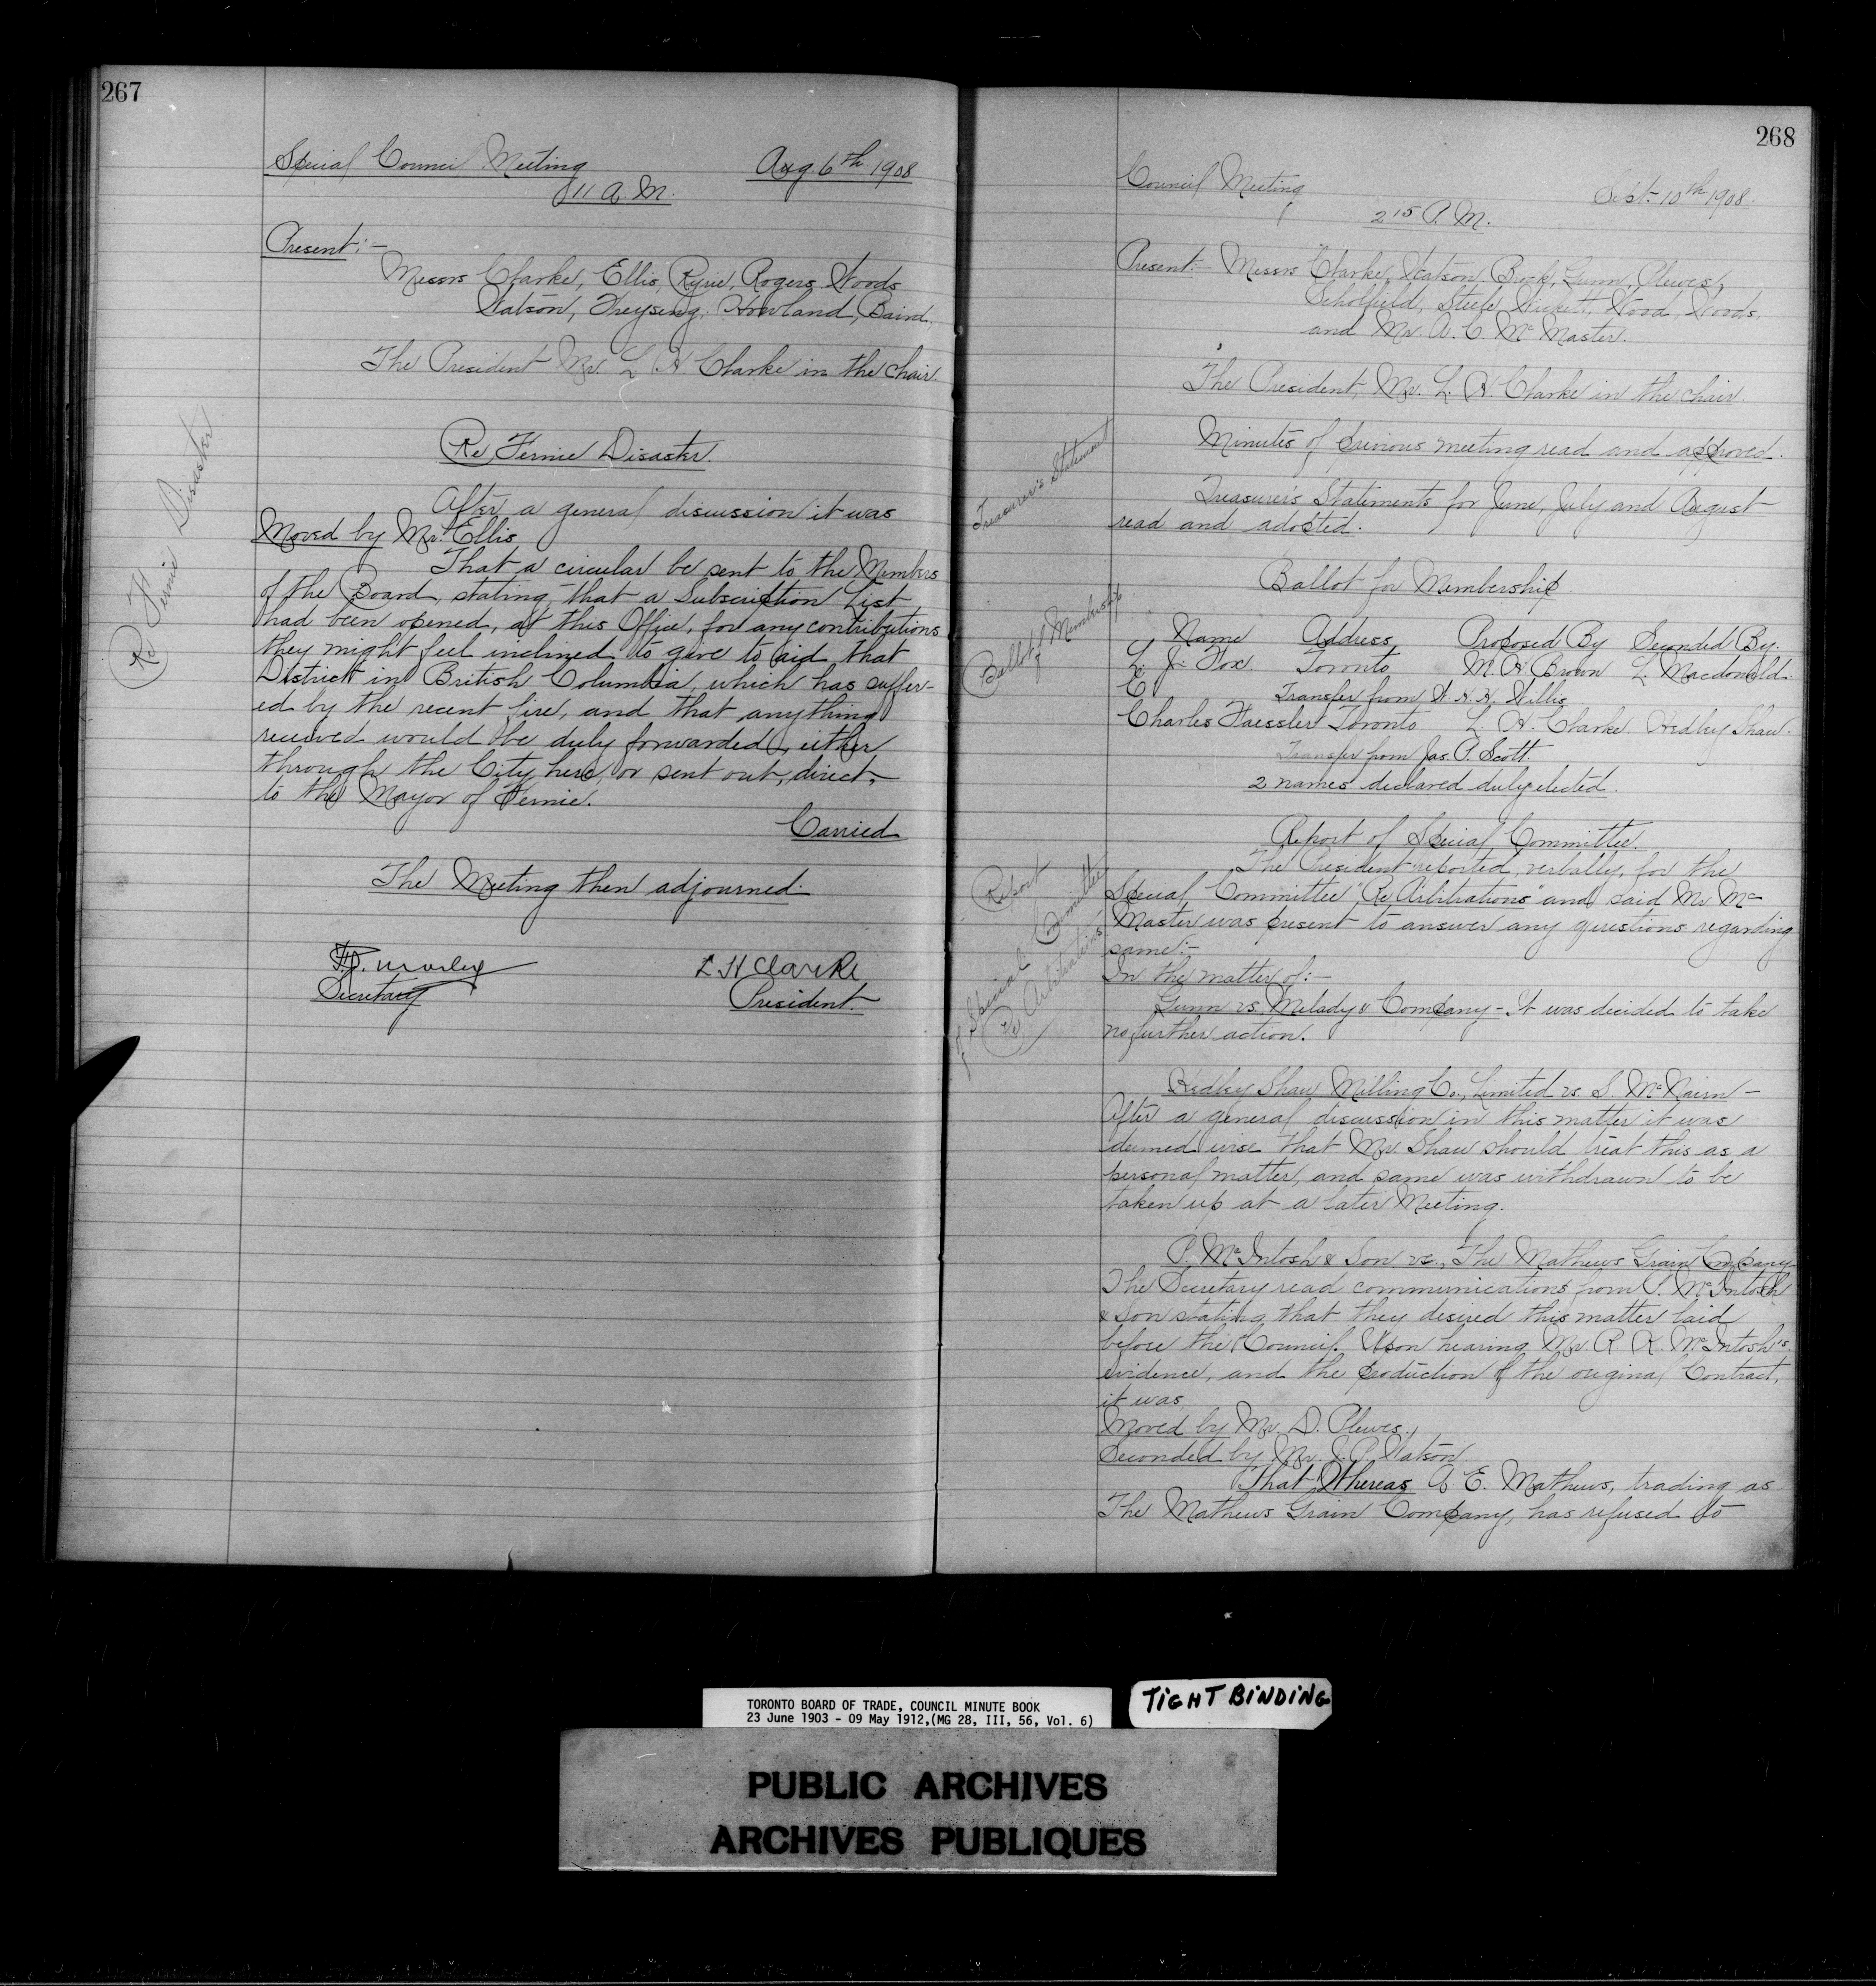 267
Special Council Meeting Aug. 6th 1908
11 A. M.
Present:-
Messrs Clarke, Ellis, Ryrie, Rogers, Woods
Watson, Freyseng, Howland, Baird.
The President Mr. L. H. Clarke in the chair.
Re Fernie Disaster
Re Fernie Disaster.
After a general discussion it was
Moved by Mr. Ellis
That a circular be sent to the Members
of the Board, stating that a Subscription List
had been opened, at this Office, for any contributions
they might feel inclined to give to aid that
District in British Columbia, which has suffer-
ed by the recent fire, and that anything
received would be duly forwarded, either
through the City here, or sent out, direct,
to the Mayor of Fernie.
Carried
The Meeting then adjourned.
F.G. Morley L H Clarke
Secretary President.
268
Council Meeting Sept. 10th 1908.
2 15 P. M.
Present:- Messrs Clarke, Watson, Brock, Gunn, Plewes,
Scholfield, Steele, Wickett, Wood, Woods,
and Mr. A. C. McMaster.
The President, Mr. L. H. Clarke in the chair.
Minutes of previous meeting read and approved.
Treasurer's Statement
Treasurer's Statements for June, July and August
read and adopted.
Ballot for Membership
Ballot for Membership.
Name Address Proposed By Seconded By.
L. J. Fox Toronto M. H. Brown L. Macdonald.
Transfer from W. H. K. Willis
Charles Faessler Toronto L. H. Clarke Hedley Shaw.
Transfer from Jas. P. Scott.
2 names declared duly elected.
Report of Special Committee Re Arbitrations
Report of Special Committee.
The President reported, verbally, for the
Special Committee "Re Arbitrations" and said Mr. Mc
Master was present to answer any questions regarding
same:-
In the matter of:-
Gunn vs. Melady & Company - It was decided to take
no further action.
Hedley Shaw Milling Co., Limited vs. S. McNairn -
After a general discussion in this matter it was
deemed wise that Mr. Shaw should treat this as a
personal matter, and same was withdrawn to be
taken up at a later Meeting.
P. McIntosh & Son vs., The Mathews Grain Company
The Secretary read communications from P. McIntosh
& Son stating that they desired this matter laid
before the Council. Upon hearing Mr. R. K. McIntosh's
evidence, and the production of the original Contract,
it was
Moved by Mr. D. Plewes.,
Seconded by Mr. J. P. Watson.
That Whereas A. E. Mathews, trading as
The Mathews Grain Company, has refused to
TORONTO BOARD OF TRADE, COUNCIL MINUTE BOOK
23 June 1903 - 09 May 1912,(MG 28, III, 56, Vol. 6)
TIGHT BINDING
PUBLIC ARCHIVES
ARCHIVES PUBLIQUES